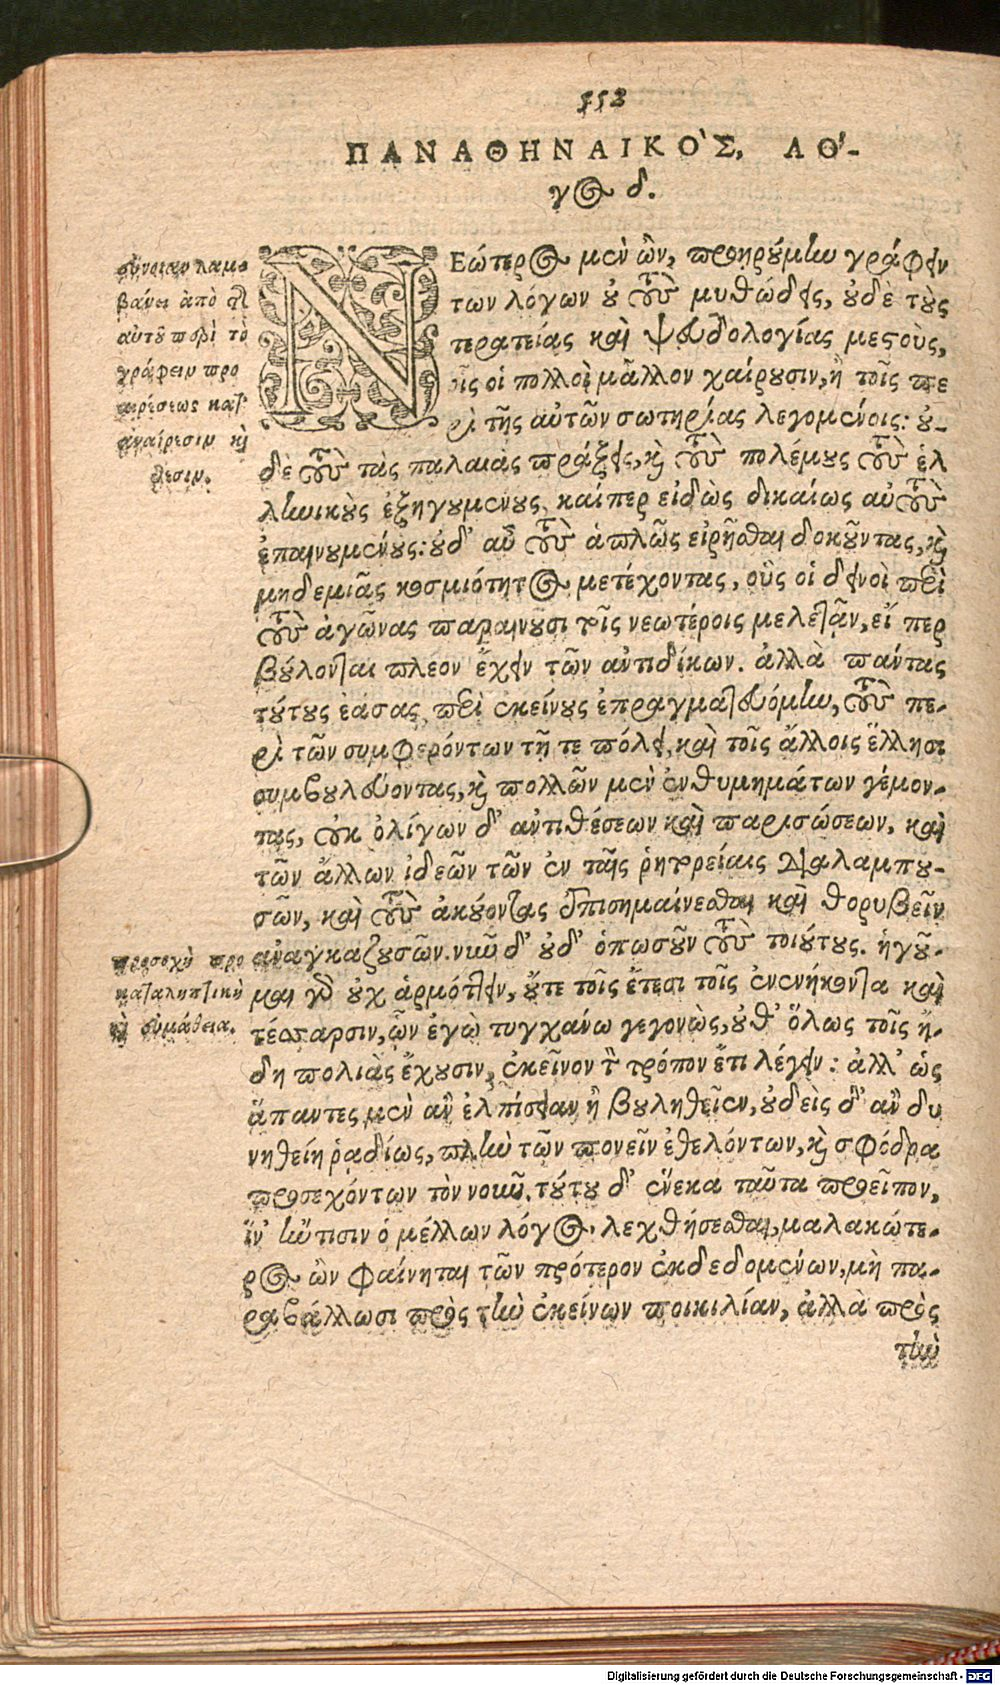 552
ΠΑΝΑΘΗΝΑΙΚΟ'Σ, ΛΟ'-
γος δ.
ΝΕώτερος μὲν ὢν, προῃρούμην γράφειν
των λόγων οὐ τοὺς μυθώδεις, οὐδὲ τοὺς
τερατείας καὶ ψευδολογίας μεστοὺς,
οἷς οἱ πολλοὶ μᾶλλον χαίρουσιν, ἢ τοῖς πε
ρὶ τῆς αὑτῶν σωτηρίας λεγομένοις: οὐ-
δὲ τοὺς τὰς παλαιὰς πράξεις, καὶ τοὺς πολέμους τοὺς ἑλ
ληνικοὺς ἐξηγουμένους, καίπερ εἰδὼς δικαίως αὐτοὺς
ἐπαινουμένους: οὐδ' αὖ τοὺς ἁπλῶς εἰρῆσθαι δοκοῦντας, καὶ
μηδεμιᾶς κοσμιότητος μετέχοντας, οὓς οἱ δεινοὶ περὶ
τοὺς ἀγῶνας παραινοῦσι τοῖς νεωτέροις μελετᾷν, εἴ περ
βούλονται πλέον ἔχειν τῶν ἀντιδίκων. ἀλλὰ πάντας
τούτους ἐάσας, περὶ ἐκείνους ἐπραγματευόμην, τοὺς πε-
ρὶ τῶν συμφερόντων τῇ τε πόλει, καὶ τοῖς ἄλλοις ἕλλησι
συμβουλεύοντας, καὶ πολλῶν μὲν ἐνθυμημάτων γέμον-
τας, οὐκ ὀλίγων δ' ἀντιθέσεων καὶ παρισώσεων, καὶ
τῶν ἄλλων ἰδεῶν τῶν ἐν ταῖς ῥητορείαις διαλαμπου-
σῶν, καὶ τοὺς ἀκούοντας ἐπισημαίνεσθαι καὶ θορυβεῖν
ἀναγκαζουσῶν. νῦν δ' οὐδ' ὁπωσοῦν τοὺς τοιούτους. ἡγοῦ-
μαι γὰρ οὐχ ἁρμόττειν, οὔτε τοῖς ἔτεσι τοῖς ἐνενήκοντα καὶ
τέσσαρσιν, ὧν ἐγὼ τυγχάνω γεγονὼς, οὐθ' ὅλως τοῖς ἤ-
δη πολιὰς ἔχουσιν, ἐκεῖνον τὸν τρόπον ἔτι λέγειν: ἀλλ' ὡς
ἅπαντες μὲν ἂν ἐλπίσειαν ἢ βουληθεῖεν, οὐδεὶς δ' ἂν δυ
νηθείη ῥαδίως, πλὴν τῶν πονεῖν ἐθελόντων, καὶ σφόδρα
προσεχόντων τὸν νοῦν. τούτου δ' ἕνεκα ταῦτα προεῖπον,
ἵν' ἤν τισιν ὁ μέλλων λόγος λεχθήσεσθαι, μαλακώτε-
ρος ὢν φαίνηται τῶν πρότερον ἐκδεδομένων, μὴ πα-
ραβάλλωσι πρὸς τὴν ἐκείνων ποικιλίαν, ἀλλὰ πρὸς
τὴν
εὔνοιαν λαμ-
βάνει ἀπὸ τῆς
αὐτοῦ περὶ τὸ
γράφειν προ
αιρέσεως κατ'
ἀναίρεσιν καὶ
θέσιν.
προσοχὴ προ
καταληπτικὴ
καὶ εὐμάθεια.
Digitalisierung gefördert durch die Deutsche Forschungsgemeinschaft - DFG